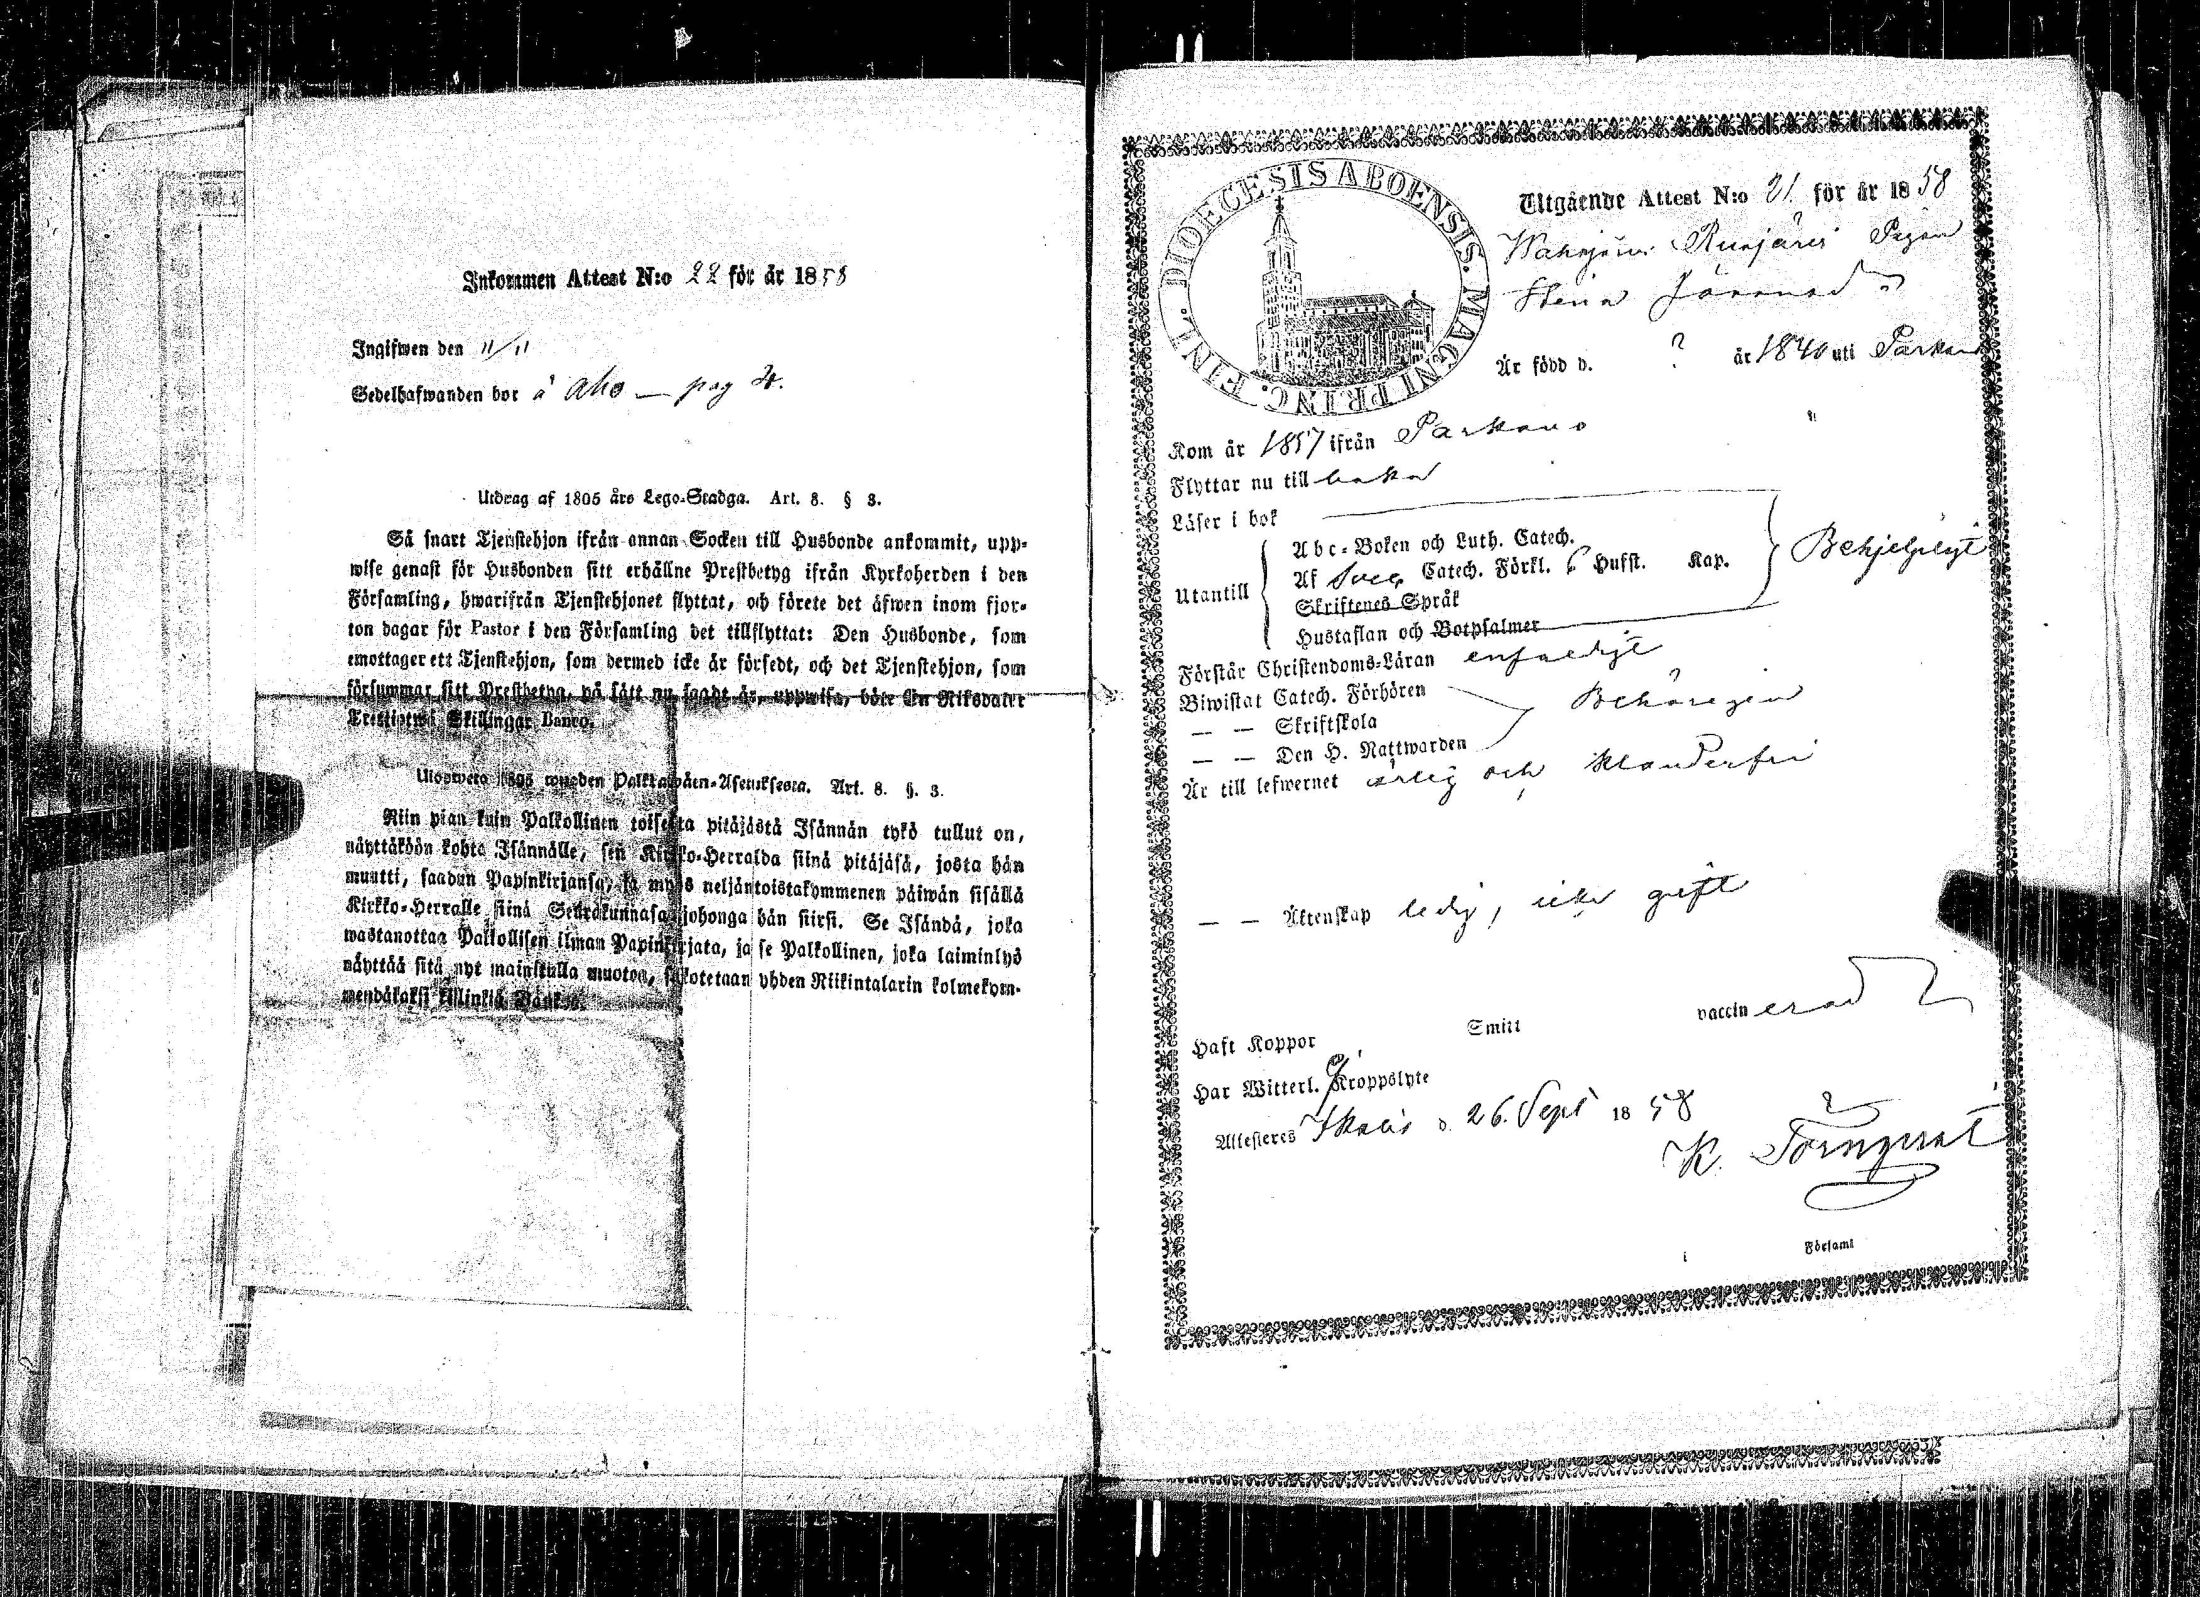 Inkommen Attest N:o 22 för år 1858
Ingifwen den 11/11
Sedelhafwanden bor å Aho — pag 4.
Utdrag af 1805 års Lego-Stadga. Art. 8. § 3.
Så snart Tjenstehjon ifrån annan Socken till Husbonde ankommit, upp-
wise genast för Husbonden sitt erhållne Prestbetyg ifrån Kyrkoherden i den
Församling, hwarifrån Tjenstehjonet flyttat, och förete det äfwen inom fjor-
ton dagar för Pastor i den Församling det tillflyttat: Den Husbonde, som
emottager ett Tjenstehjon, som dermed icke är försedt, och det Tjenstehjon, som
försummar sitt Prestbetyg, på sätt nu sagdt är, uppwisa, böte En Riksdaler
Trettiotwå Skillingar Banco.
Ulosweto 1805 wuoden Palkkawäen-Asetuksesta. Art. 8. §. 3.
Niin pian kuin Palkollinen toisesta pitäjästä Isännän tykö tullut on,
näyttäköön kohta Isännälle, sen Kirkko-Herralda siinä pitäjäsä, josta hän
muutti, saadun Papinkirjansa, ja myös neljäntoistakymmenen päiwän sisällä
Kirkko-Herralle siinä Seurakunnasa johonga hän siirsi. Se Isändä, joka
wastanottaa Palkollisen ilman Papinkirjata, ja se Palkollinen, joka laiminlyö
näyttää sitä nyt mainitulla muotoa, sakotetaan yhden Riikintalarin kolmekym-
mendäkaksi killinkiä Bankos.
DIOECESIS ABOENSIS. MAGNI PRINC. FINL.
Utgående Attest N:o 21. för år 1858
Pigan
Stina
Är född d. ? år 1840 uti Parkano
Kom år 1857 ifrån Parkano
Flyttar nu till baka
Läser i bok
Utantill
Abc-Boken och Luth. Catech.
Af Sveb. Catech. Förkl. 6 Hufst. Kap.
Skriftenes Språk
Hustaflan och Botpsalmer
Behjelpligt
Förstår Christendoms-Läran enfaldigt
Biwistat Catech. Förhören
— — Skriftskola
— — Den H. Nattwarden
Behörigen
Är till lefwernet ärlig och klanderfri
— — Äktenskap ledig, icke gift
Haft Koppor Smitt vaccinerad
Har Witterl. Ej Kroppslyte
Attesteres Ikalis d. 26. Sept 1858
K. Törnqvist
i Församl